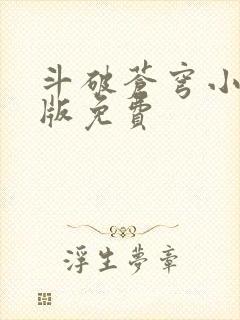 斗破蒼穹小
版免費
浮生夢章